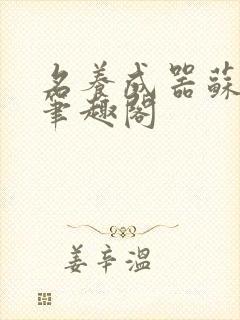 名養成器蘇
筆趣閣
姜辛溫